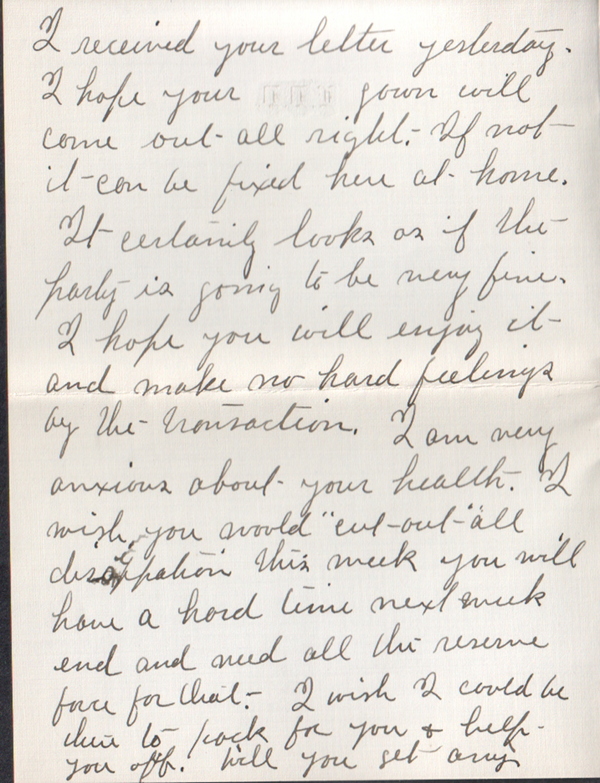 I received your letter yesterday.
I hope your gown will
come out all right. If not
it can be fixed here at home.
It certainly looks as if the
party is going to be very fine.
I hope you will enjoy it
and make no hard feelings
by the transaction. I am very
anxious about your health. I
wish you would "cut-out" all
dissipation this week you will
have a hard time next week
end and need all the reserve
force for that. I wish I could be
there to pack for you & help
you off. Will you get any